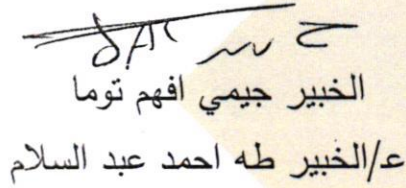 الخبير جيمي افهم توما
ع/الخبير طه احمد عبد السلام